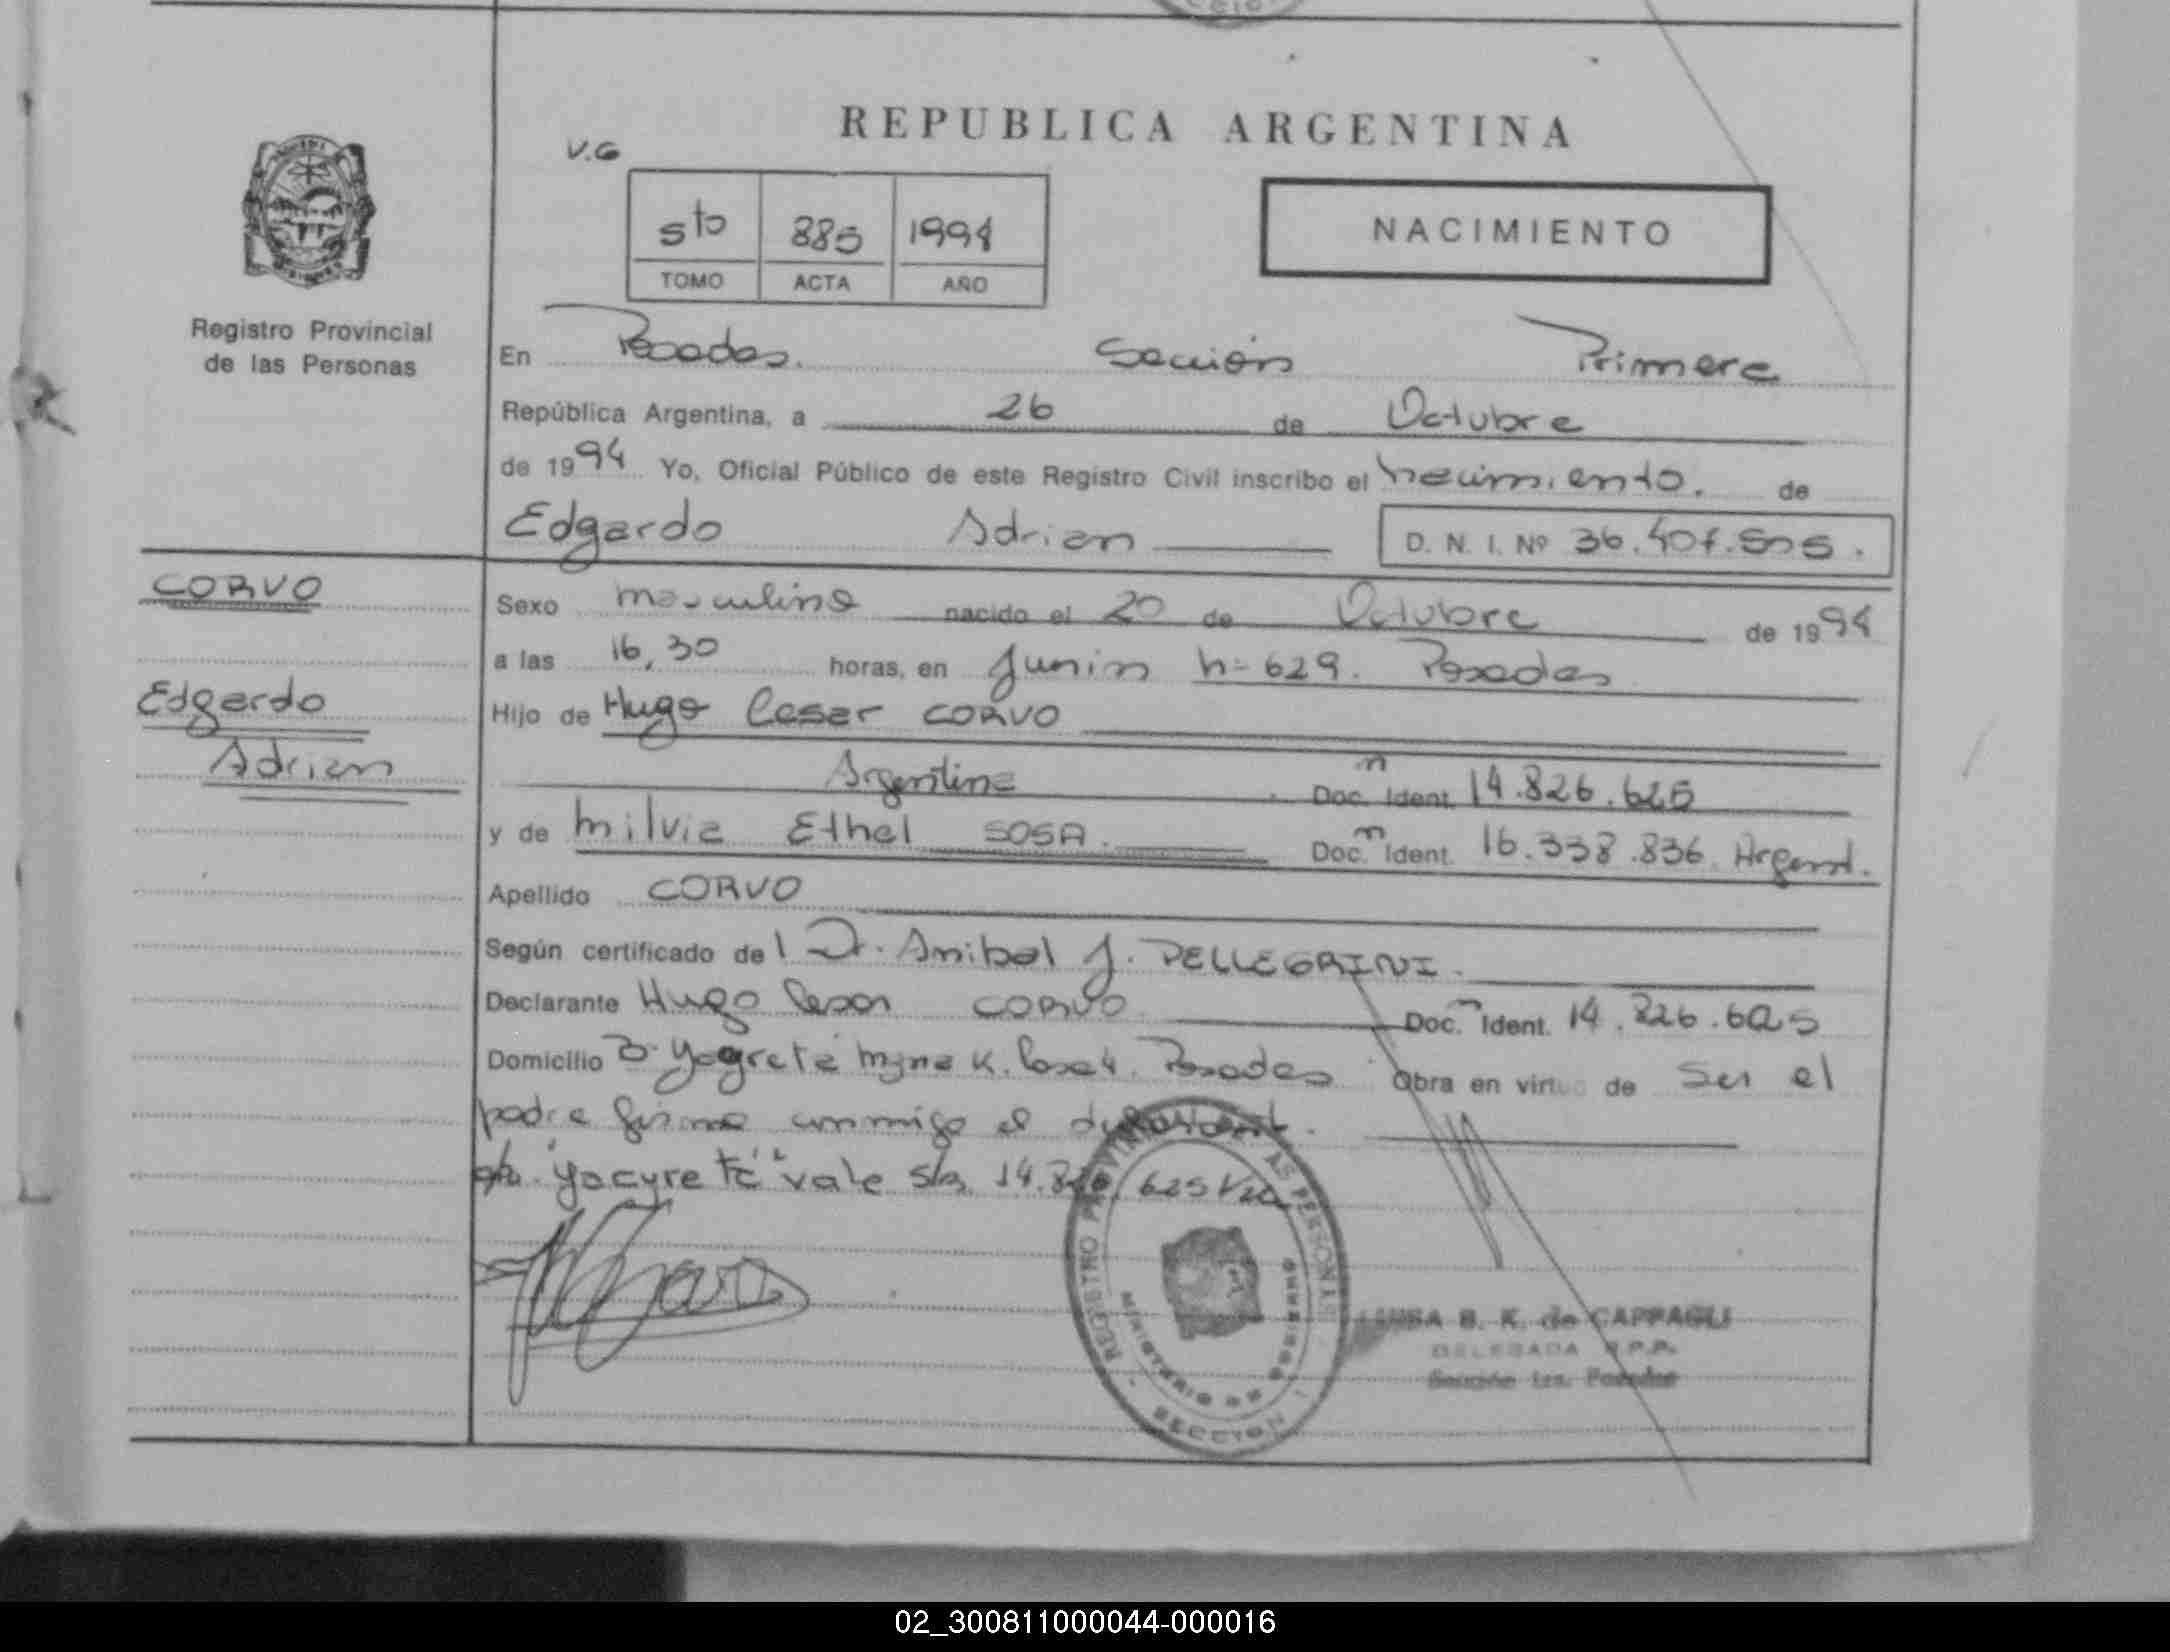 REPUBLICA ARGENTINA
V.G
5to 885 1994
TOMO ACTA AÑO
NACIMIENTO
Registro Provincial
de las Personas
En Posadas. Sección Primera
República Argentina, a 26 de Octubre
de 1994 Yo, Oficial Público de este Registro Civil inscribo el nacimiento. de
Edgardo Adrian D. N. I. Nº
CORVO
Edgardo
Adrian
Sexo masculino nacido el 20 de Octubre de 1994
a las 16,30 horas, en Junin n= 629. Posadas
Hijo de Hugo Cesar CORVO
Argentino Doc. Ident. 14.826.625
y de Milvia Ethel SOSA. Doc. Ident. 16.338.836 Argent.
Apellido CORVO
Según certificado del Dr. Anibal J. PELLEGRINI.
Declarante Hugo Cesar CORVO Doc. Ident. 14.826.625
Domicilio B. Yagreta Mzna K. Casa 4. Posadas Obra en virtud de Ser el
padre firma conmigo el
"Yacyretá" vale s/r 14.826.625 Vale
REGISTRO PROVINCIAL DE LAS PERSONAS
MINISTERIO DE GOBIERNO
SECCION 1
LUISA B. K. de CAPPAGLI
DELEGADA R.P.P.
Sección 1ra. Posadas
02_300811000044-000016